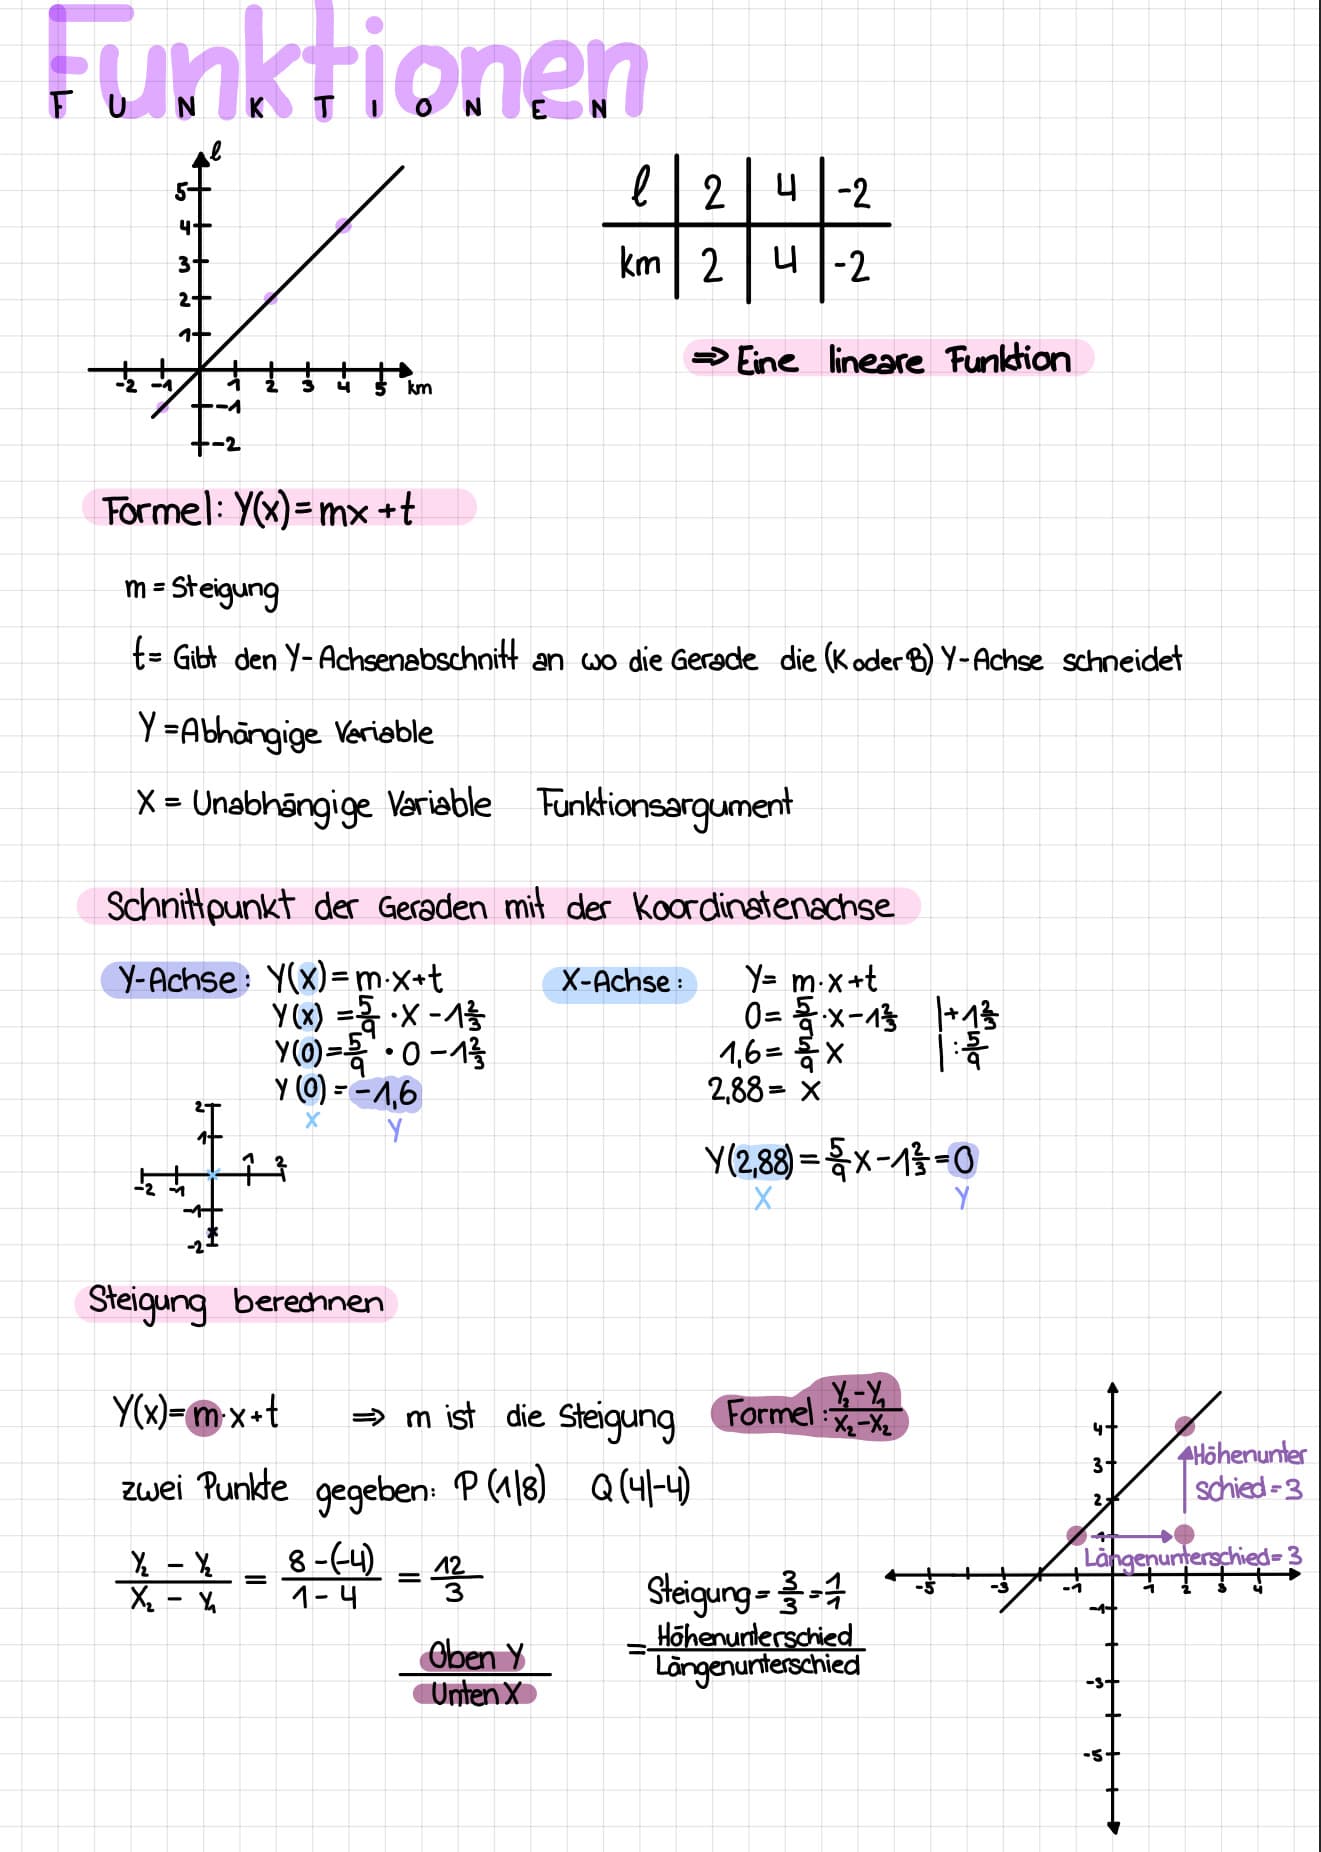 Funktionen
FUNKTIONEN
l
5
4
3
2
1
-2 -1 1 2 3 4 5 km
-1
-2
l 2 4 -2
km 2 4 -2
⇒ Eine lineare Funktion
Formel: Y(x) = mx + t
m = Steigung
t = Gibt den Y-Achsenabschnitt an wo die Gerade die (K oder B) Y-Achse schneidet
Y = Abhängige Variable
X = Unabhängige Variable Funktionsargument
Schnittpunkt der Geraden mit der Koordinatenachse
Y-Achse: Y(x) = m·x+t
Y(x) = 5/9 · X - 1 2/3
Y(0) = 5/9 · 0 - 1 2/3
Y(0) = -1,6
X Y
2
1
-2 -1 1 2
-1
-2
X-Achse: Y = m·x+t
0 = 5/9 · X - 1 2/3 | + 1 2/3
1,6 = 5/9 X | : 5/9
2,88 = X
Y(2,88) = 5/9 X - 1 2/3 = 0
X Y
Steigung berechnen
Y(x) = m·x+t ⇒ m ist die Steigung Formel: Y2-Y1 / X2-X2
zwei Punkte gegeben: P (1|8) Q (4|-4)
Y2 - Y2 / X2 - Y1 = 8-(-4) / 1-4 = 12/3
Oben Y
Unten X
Steigung = 3/3 = 1/1
= Höhenunterschied
Längenunterschied
4
3
2
1
Höhenunter
schied = 3
Längenunterschied = 3
-5 -3 -1 1 2 3 4
-1
-3
-5